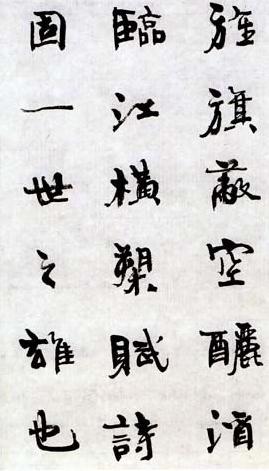 旌旗蔽空釃酒
臨江橫槊賦詩
固一世之雄也